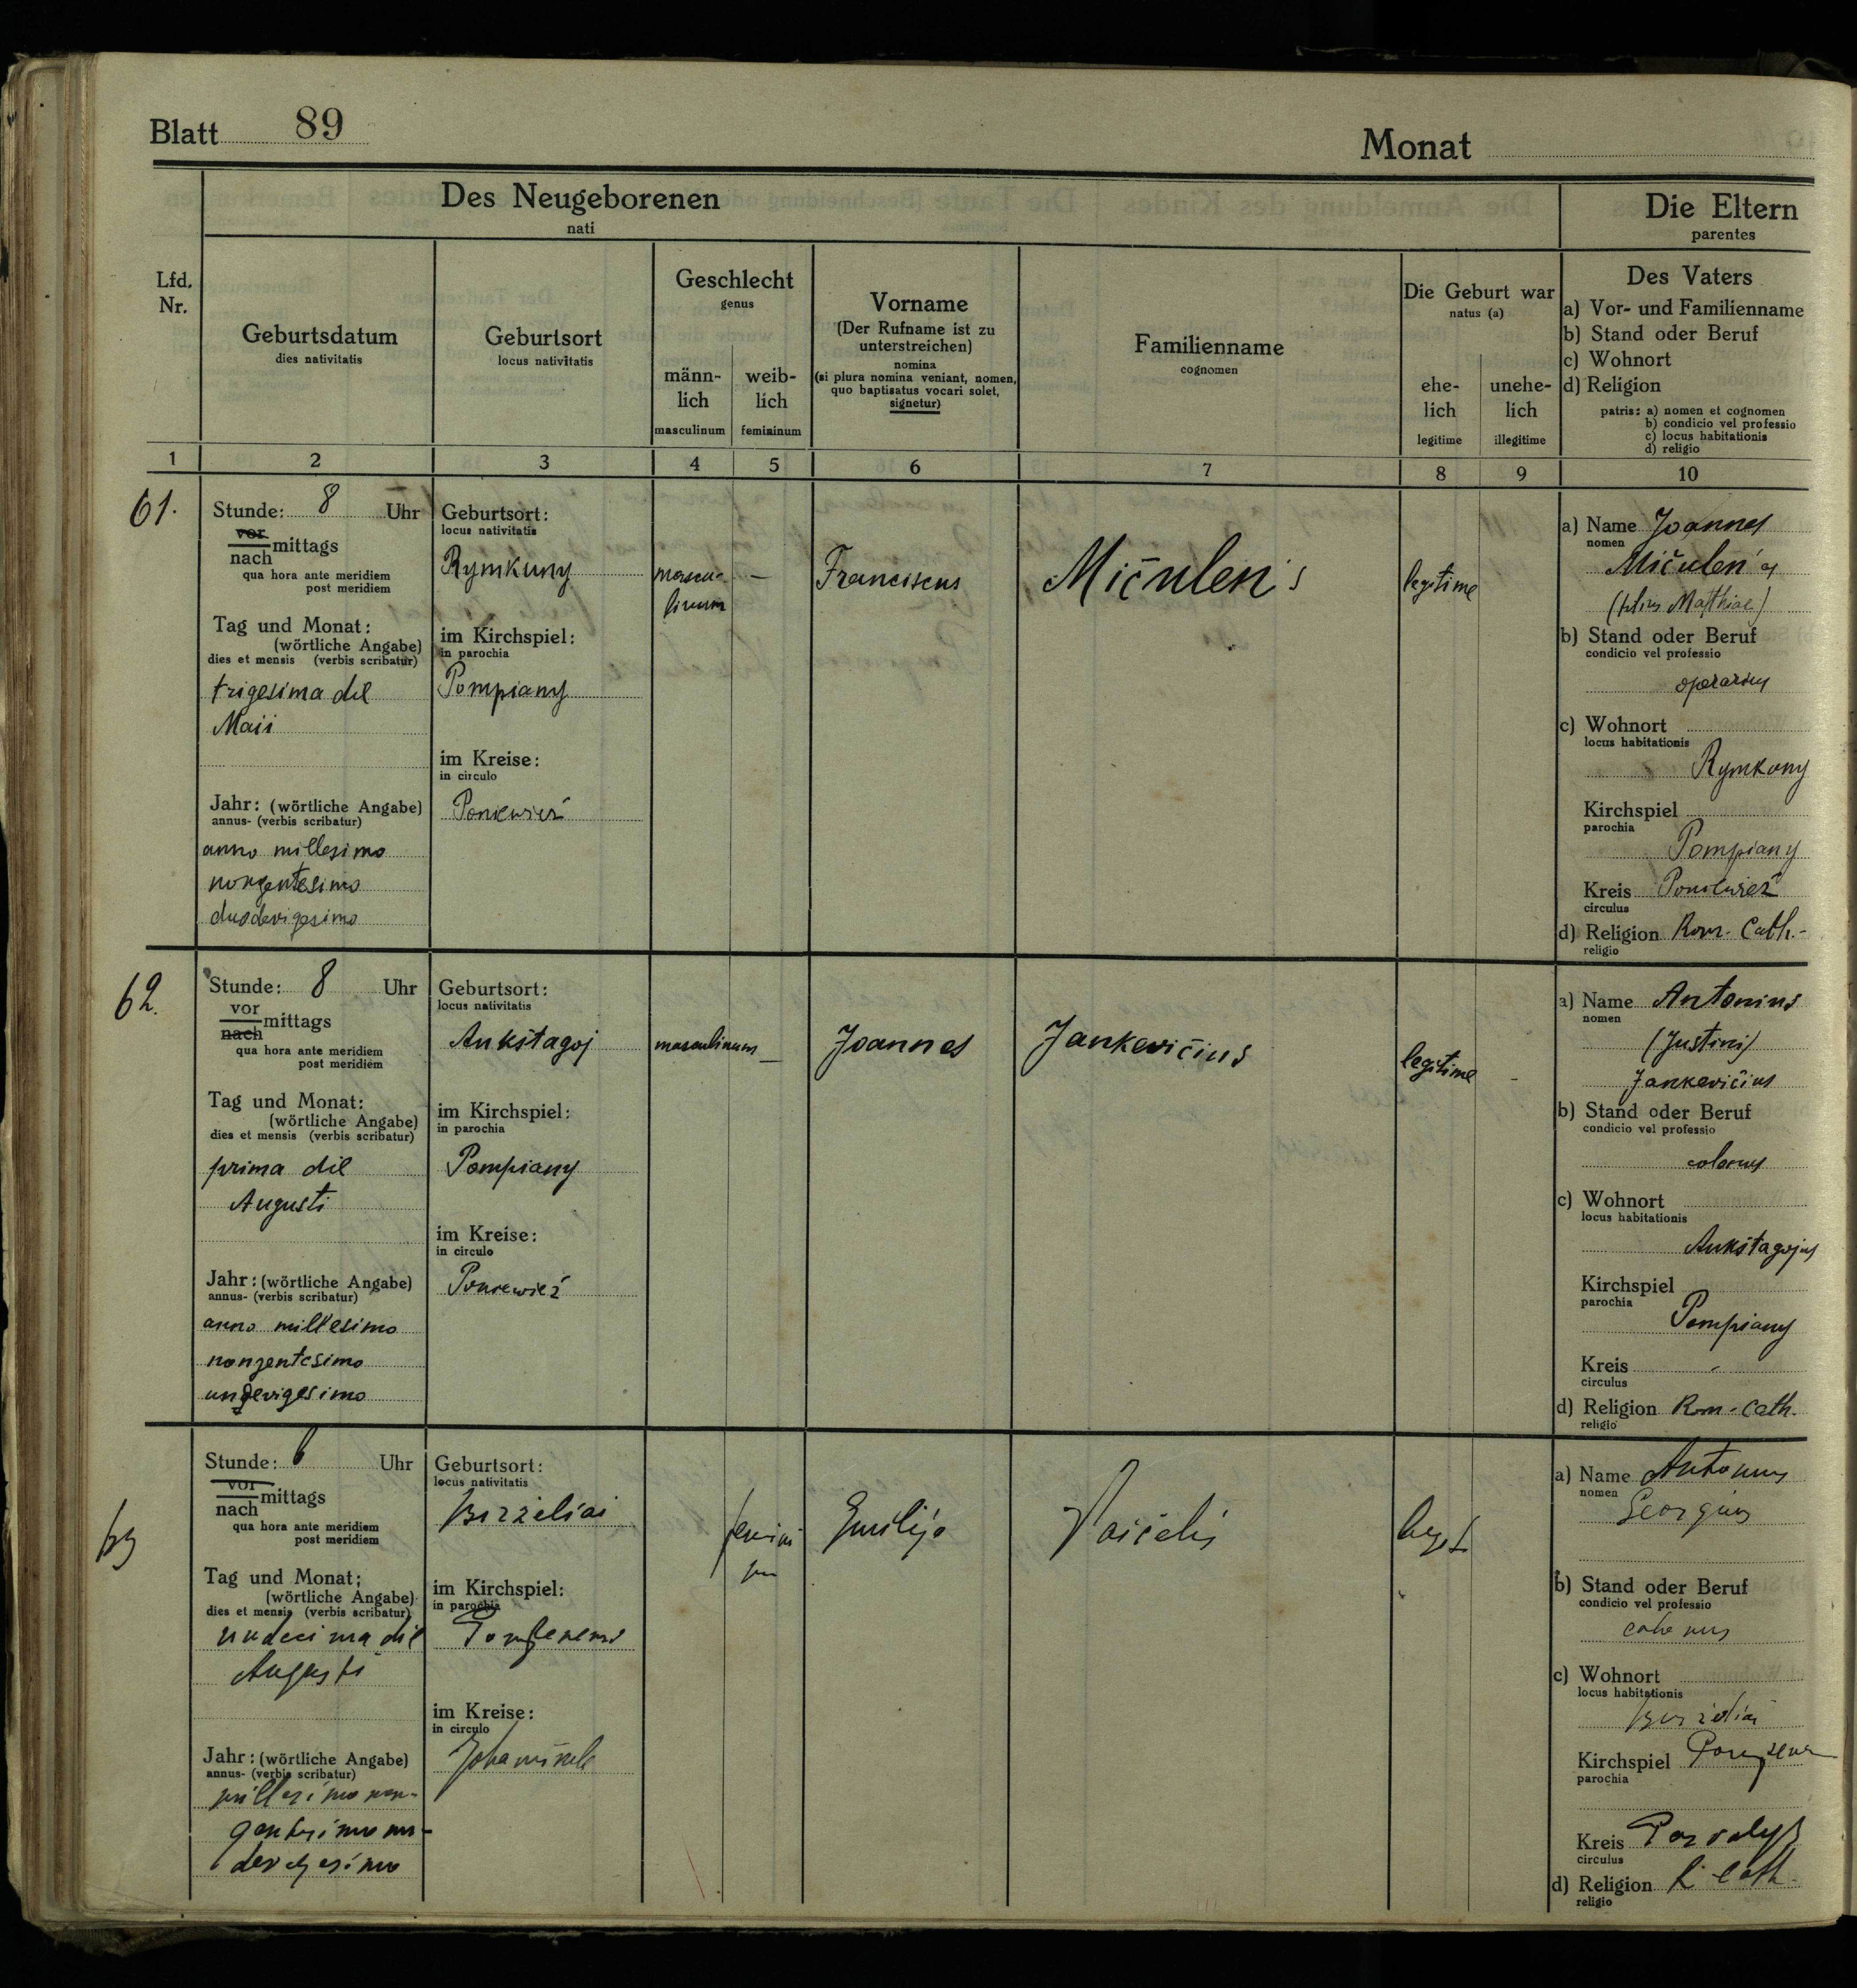 Blatt 89
Monat
Des Neugeborenen
nati
Die Eltern
parentes
Lfd. Nr.
Geburtsdatum
dies nativitatis
Geburtsort
locus nativitatis
Geschlecht
genus
männ-
lich
masculinum
weib-
lich
femininum
Vorname
(Der Rufname ist zu
unterstreichen)
nomina
(si plura nomina veniant, nomen,
quo baptisatus vocari solet,
signetur)
Familienname
cognomen
Die Geburt war
natus (a)
ehe-
lich
legitime
unehe-
lich
illegitime
Des Vaters
a) Vor- und Familienname
b) Stand oder Beruf
c) Wohnort
d) Religion
patris: a) nomen et cognomen
b) condicio vel professio
c) locus habitationis
d) religio
1 2 3 4 5 6 7 8 9 10
61.
Stunde: 8 Uhr
vor
nach mittags
qua hora ante meridiem
post meridiem
Tag und Monat:
(wörtliche Angabe)
dies et mensis (verbis scribatur)
trigesima die
Maii
Jahr: (wörtliche Angabe)
annus- (verbis scribatur)
anno millesimo
nongentesimo
duodevigesimo
Geburtsort:
locus nativitatis
Rymkuny
im Kirchspiel:
in parochia
Pompiany
im Kreise:
in circulo
Poniewież
mascu-
linum
—
Franciscus
Mičulen's
legitime
a) Name Joannes
nomen
Mičulen'as
(filius Matthiae)
b) Stand oder Beruf
condicio vel professio
operarius
c) Wohnort
locus habitationis
Rymkuny
Kirchspiel
parochia
Pompiany
Kreis Poniewież
circulus
d) Religion Rom. Cath.
religio
62.
Stunde: 8 Uhr
vor
nach mittags
qua hora ante meridiem
post meridiem
Tag und Monat:
(wörtliche Angabe)
dies et mensis (verbis scribatur)
prima die
Augusti
Jahr: (wörtliche Angabe)
annus- (verbis scribatur)
anno millesimo
nongentesimo
undevigesimo
Geburtsort:
locus nativitatis
Aukštagoj
im Kirchspiel:
in parochia
Pompiany
im Kreise:
in circulo
Poniewież
masculinum
—
Joannes
Jankevičius
legitime
-
a) Name Antonius
nomen
(Justini)
Jankevičius
b) Stand oder Beruf
condicio vel professio
colonus
c) Wohnort
locus habitationis
Aukštagojus
Kirchspiel
parochia
Pompiany
Kreis
circulus
d) Religion Rom. Cath.
religio
63
Stunde: 6 Uhr
vor
nach mittags
qua hora ante meridiem
post meridiem
Tag und Monat:
(wörtliche Angabe)
dies et mensis (verbis scribatur)
undecima die
Augusti
Jahr: (wörtliche Angabe)
annus- (verbis scribatur)
millesimo non-
gentesimo un-
devigesimo
Geburtsort:
locus nativitatis
Berželiai
im Kirchspiel:
in parochia
im Kreise:
in circulo
Johaniskele
femini
num
Emilija
Vaičelis
legit
a) Name Antonius
nomen
Georgius
b) Stand oder Beruf
condicio vel professio
colonus
c) Wohnort
locus habitationis
Berželiai
Kirchspiel
parochia
Kreis
circulus
d) Religion R. Cath.
religio